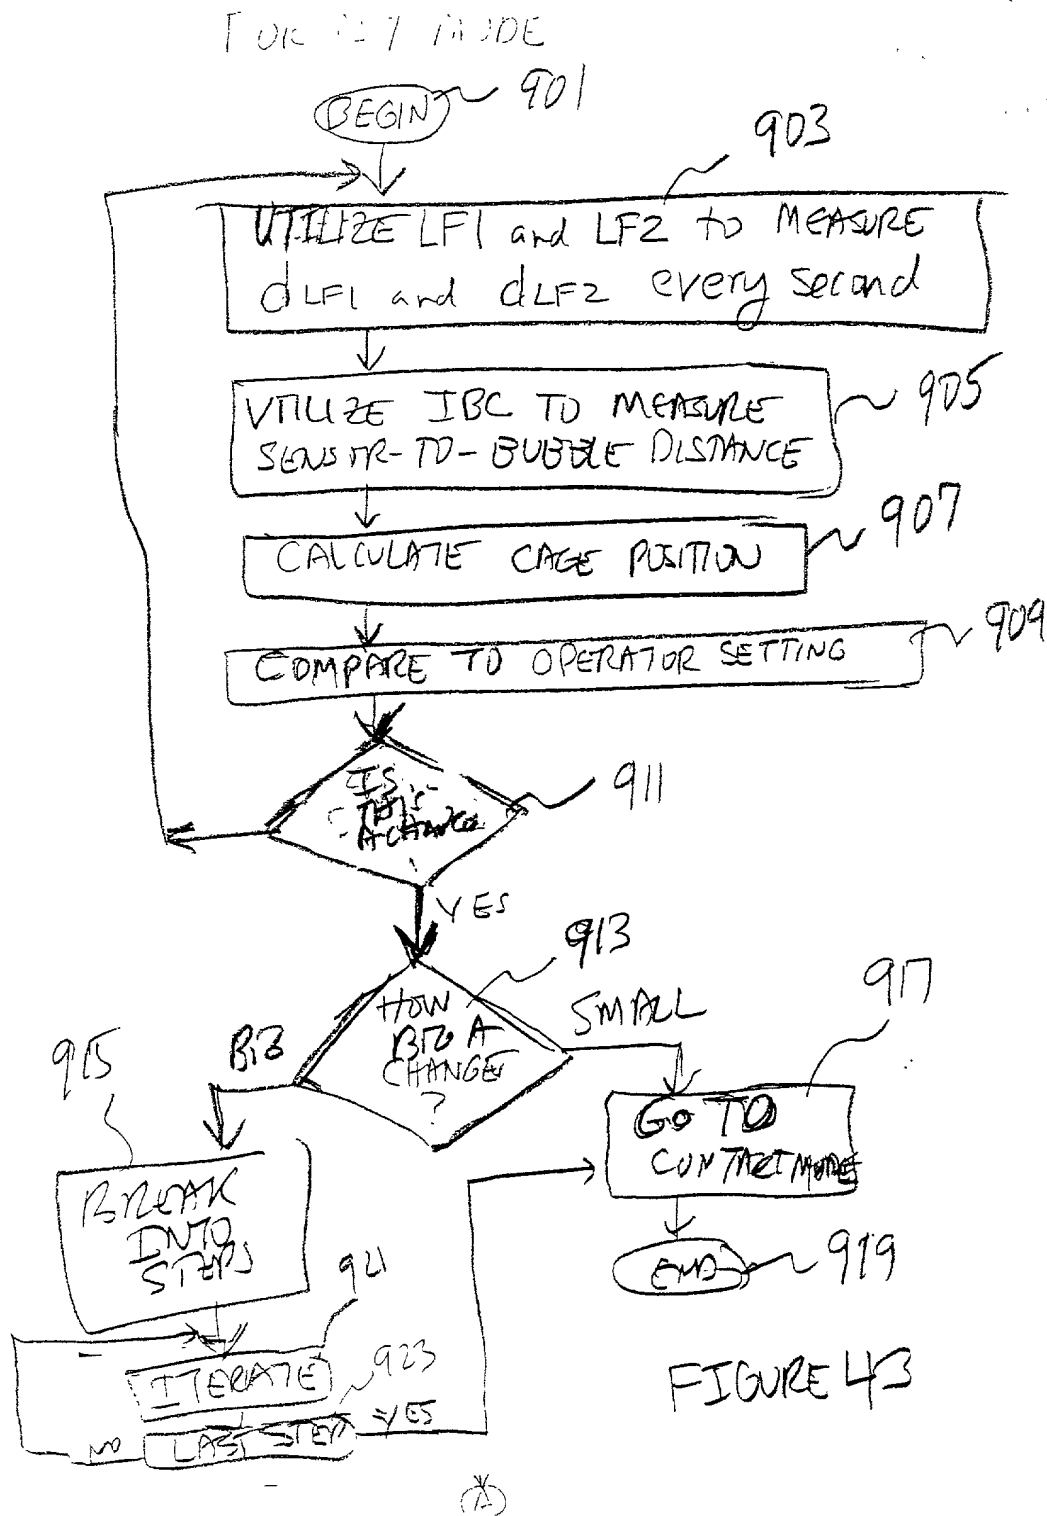 MODE
BEGIN 901
903
UTILIZE LF1 and LF2 to MEASURE
dLF1 and dLF2 every second
905
UTILIZE IBC TO MEASURE
SENSOR-TO-BUBBLE DISTANCE
907
CALCULATE CAGE POSITION
909
COMPARE TO OPERATOR SETTING
911
IS
THIS
A CHANGE
YES
913
HOW
BIG A
CHANGE
?
BIG
SMALL
915
917
BREAK
INTO
STEPS
GO TO
CONTACT MODE
END 919
921
ITERATE
923
LAST STEP
YES
NO
FIGURE 43
A